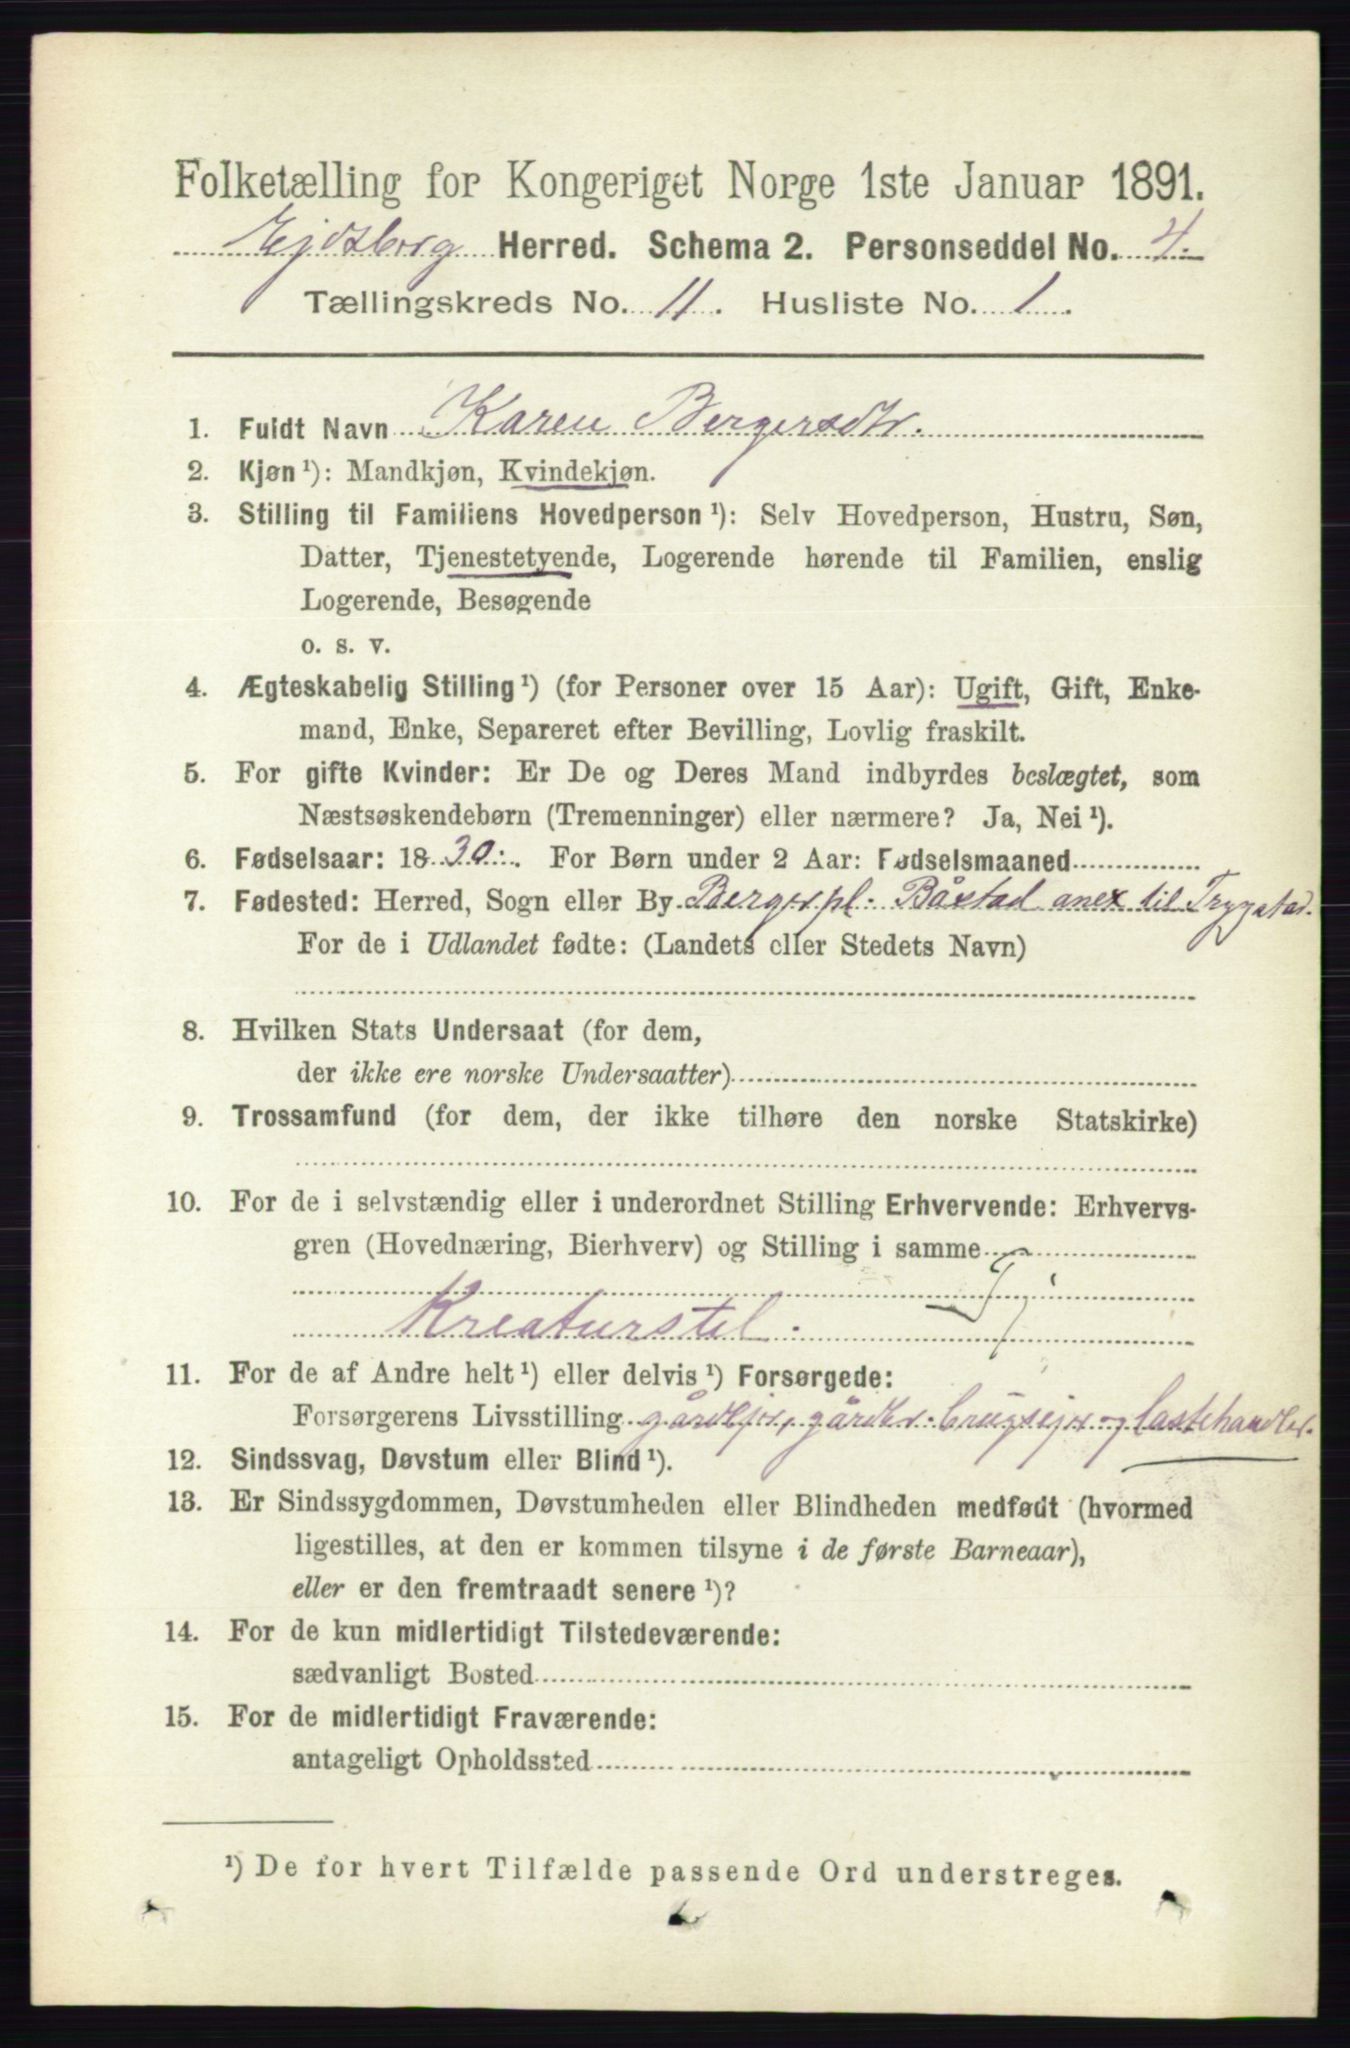 Folketælling for Kongeriget Norge 1ste Januar 1891.
Ejdsberg Herred. Schema 2. Personseddel No. 4.
Tællingskreds No. 11. Husliste No. 1.
1. Fuldt Navn Karen Bergersdtr.
2. Kjøn ¹): Mandkjøn, Kvindekjøn.
3. Stilling til Familiens Hovedperson ¹): Selv Hovedperson, Hustru, Søn,
Datter, Tjenestetyende, Logerende hørende til Familien, enslig
Logerende, Besøgende
o. s. v.
4. Ægteskabelig Stilling ¹) (for Personer over 15 Aar): Ugift, Gift, Enke-
mand, Enke, Separeret efter Bevilling, Lovlig fraskilt.
5. For gifte Kvinder: Er De og Deres Mand indbyrdes beslægtet, som
Næstsøskendebørn (Tremenninger) eller nærmere? Ja, Nei ¹).
6. Fødselsaar: 1830. For Børn under 2 Aar: Fødselsmaaned
7. Fødested: Herred, Sogn eller By Berger pl. Båstad anex til Trygstad.
For de i Udlandet fødte: (Landets eller Stedets Navn)
8. Hvilken Stats Undersaat (for dem,
der ikke ere norske Undersaatter)
9. Trossamfund (for dem, der ikke tilhøre den norske Statskirke)
10. For de i selvstændig eller i underordnet Stilling Erhvervende: Erhvervs-
gren (Hovednæring, Bierhverv) og Stilling i samme
Kreaturstel.
11. For de af Andre helt ¹) eller delvis ¹) Forsørgede:
Forsørgerens Livsstilling gårdejer, gårdbr. brugsejer og lastehandler.
12. Sindssvag, Døvstum eller Blind ¹).
13. Er Sindssygdommen, Døvstumheden eller Blindheden medfødt (hvormed
ligestilles, at den er kommen tilsyne i de første Barneaar),
eller er den fremtraadt senere ¹)?
14. For de kun midlertidigt Tilstedeværende:
sædvanligt Bosted
15. For de midlertidigt Fraværende:
antageligt Opholdssted
¹) De for hvert Tilfælde passende Ord understreges.